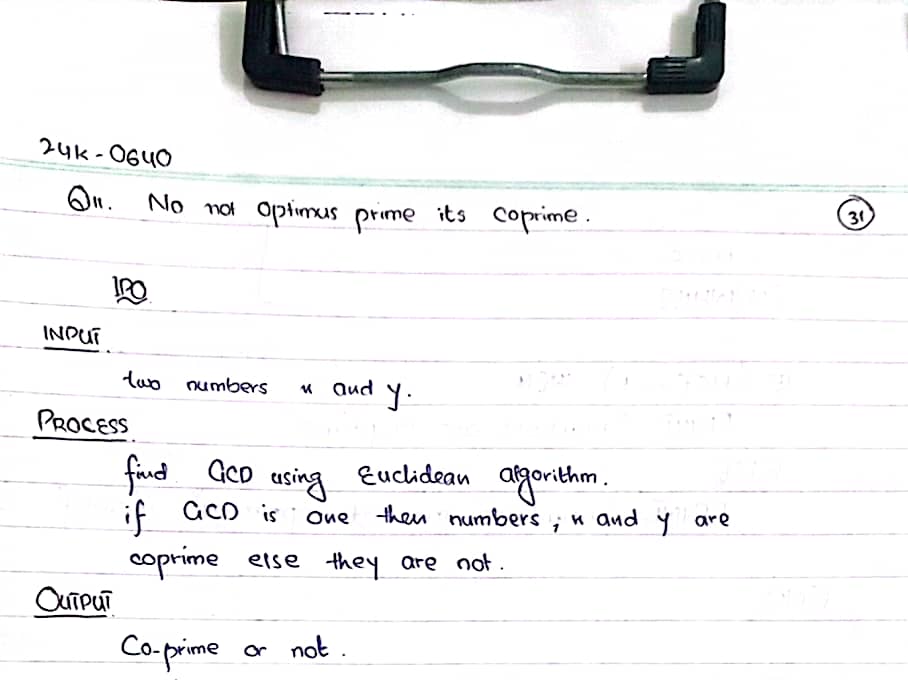 24K-0640
Q11. No not Optimus prime its coprime. 31
IPO
INPUT
two numbers x and y.
PROCESS
find GCD using Euclidean algorithm.
if GCD is one then numbers, x and y are
coprime else they are not.
OUTPUT
Co-prime or not.